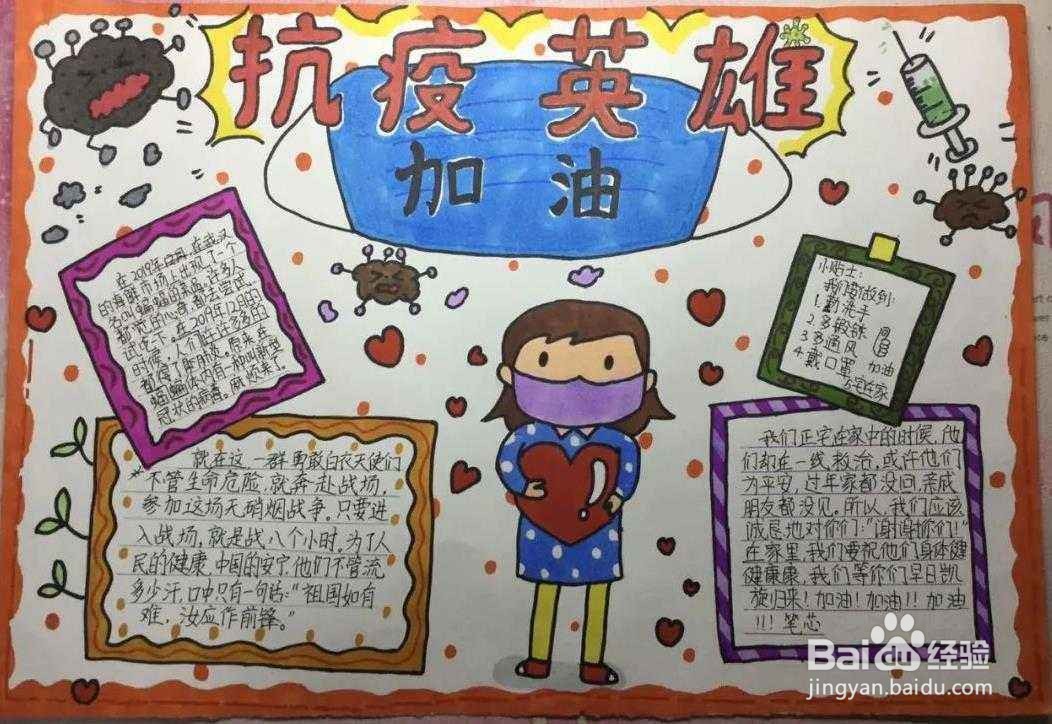 抗疫英雄
加油
在2019年12月,在武汉
的海鲜市场上出现了一个
名叫蝙蝠的东西,许多人
都
试吃下。在2019年12月的
时候,人们
冠状的病毒。就
就在这,一群勇敢白衣天使们
不管生命危险,就奔赴战场,
参加这场无硝烟战争。只要进
入战场,就是战八个小时。为了人
民的健康,中国的安宁,他们不管流
多少汗,口中只有一句话:“祖国如有
难,汝应作前锋。”
小贴士:
我们要做到:
1.勤洗手
2.多锻炼
3.多通风
4.戴口罩
加油
宅在家
我们正宅在家中的时候,他
们却在一线救治,或许他们
为平安,过年家都没回,亲戚
朋友都没见。所以,我们应该
诚恳地对你们:“谢谢你们!”
在家里,我们要祝他们身体健
健康康,我们等你们早日凯
旋归来!加油!加油!!加油
!!!笔芯
Baidu经验
jingyan.baidu.com